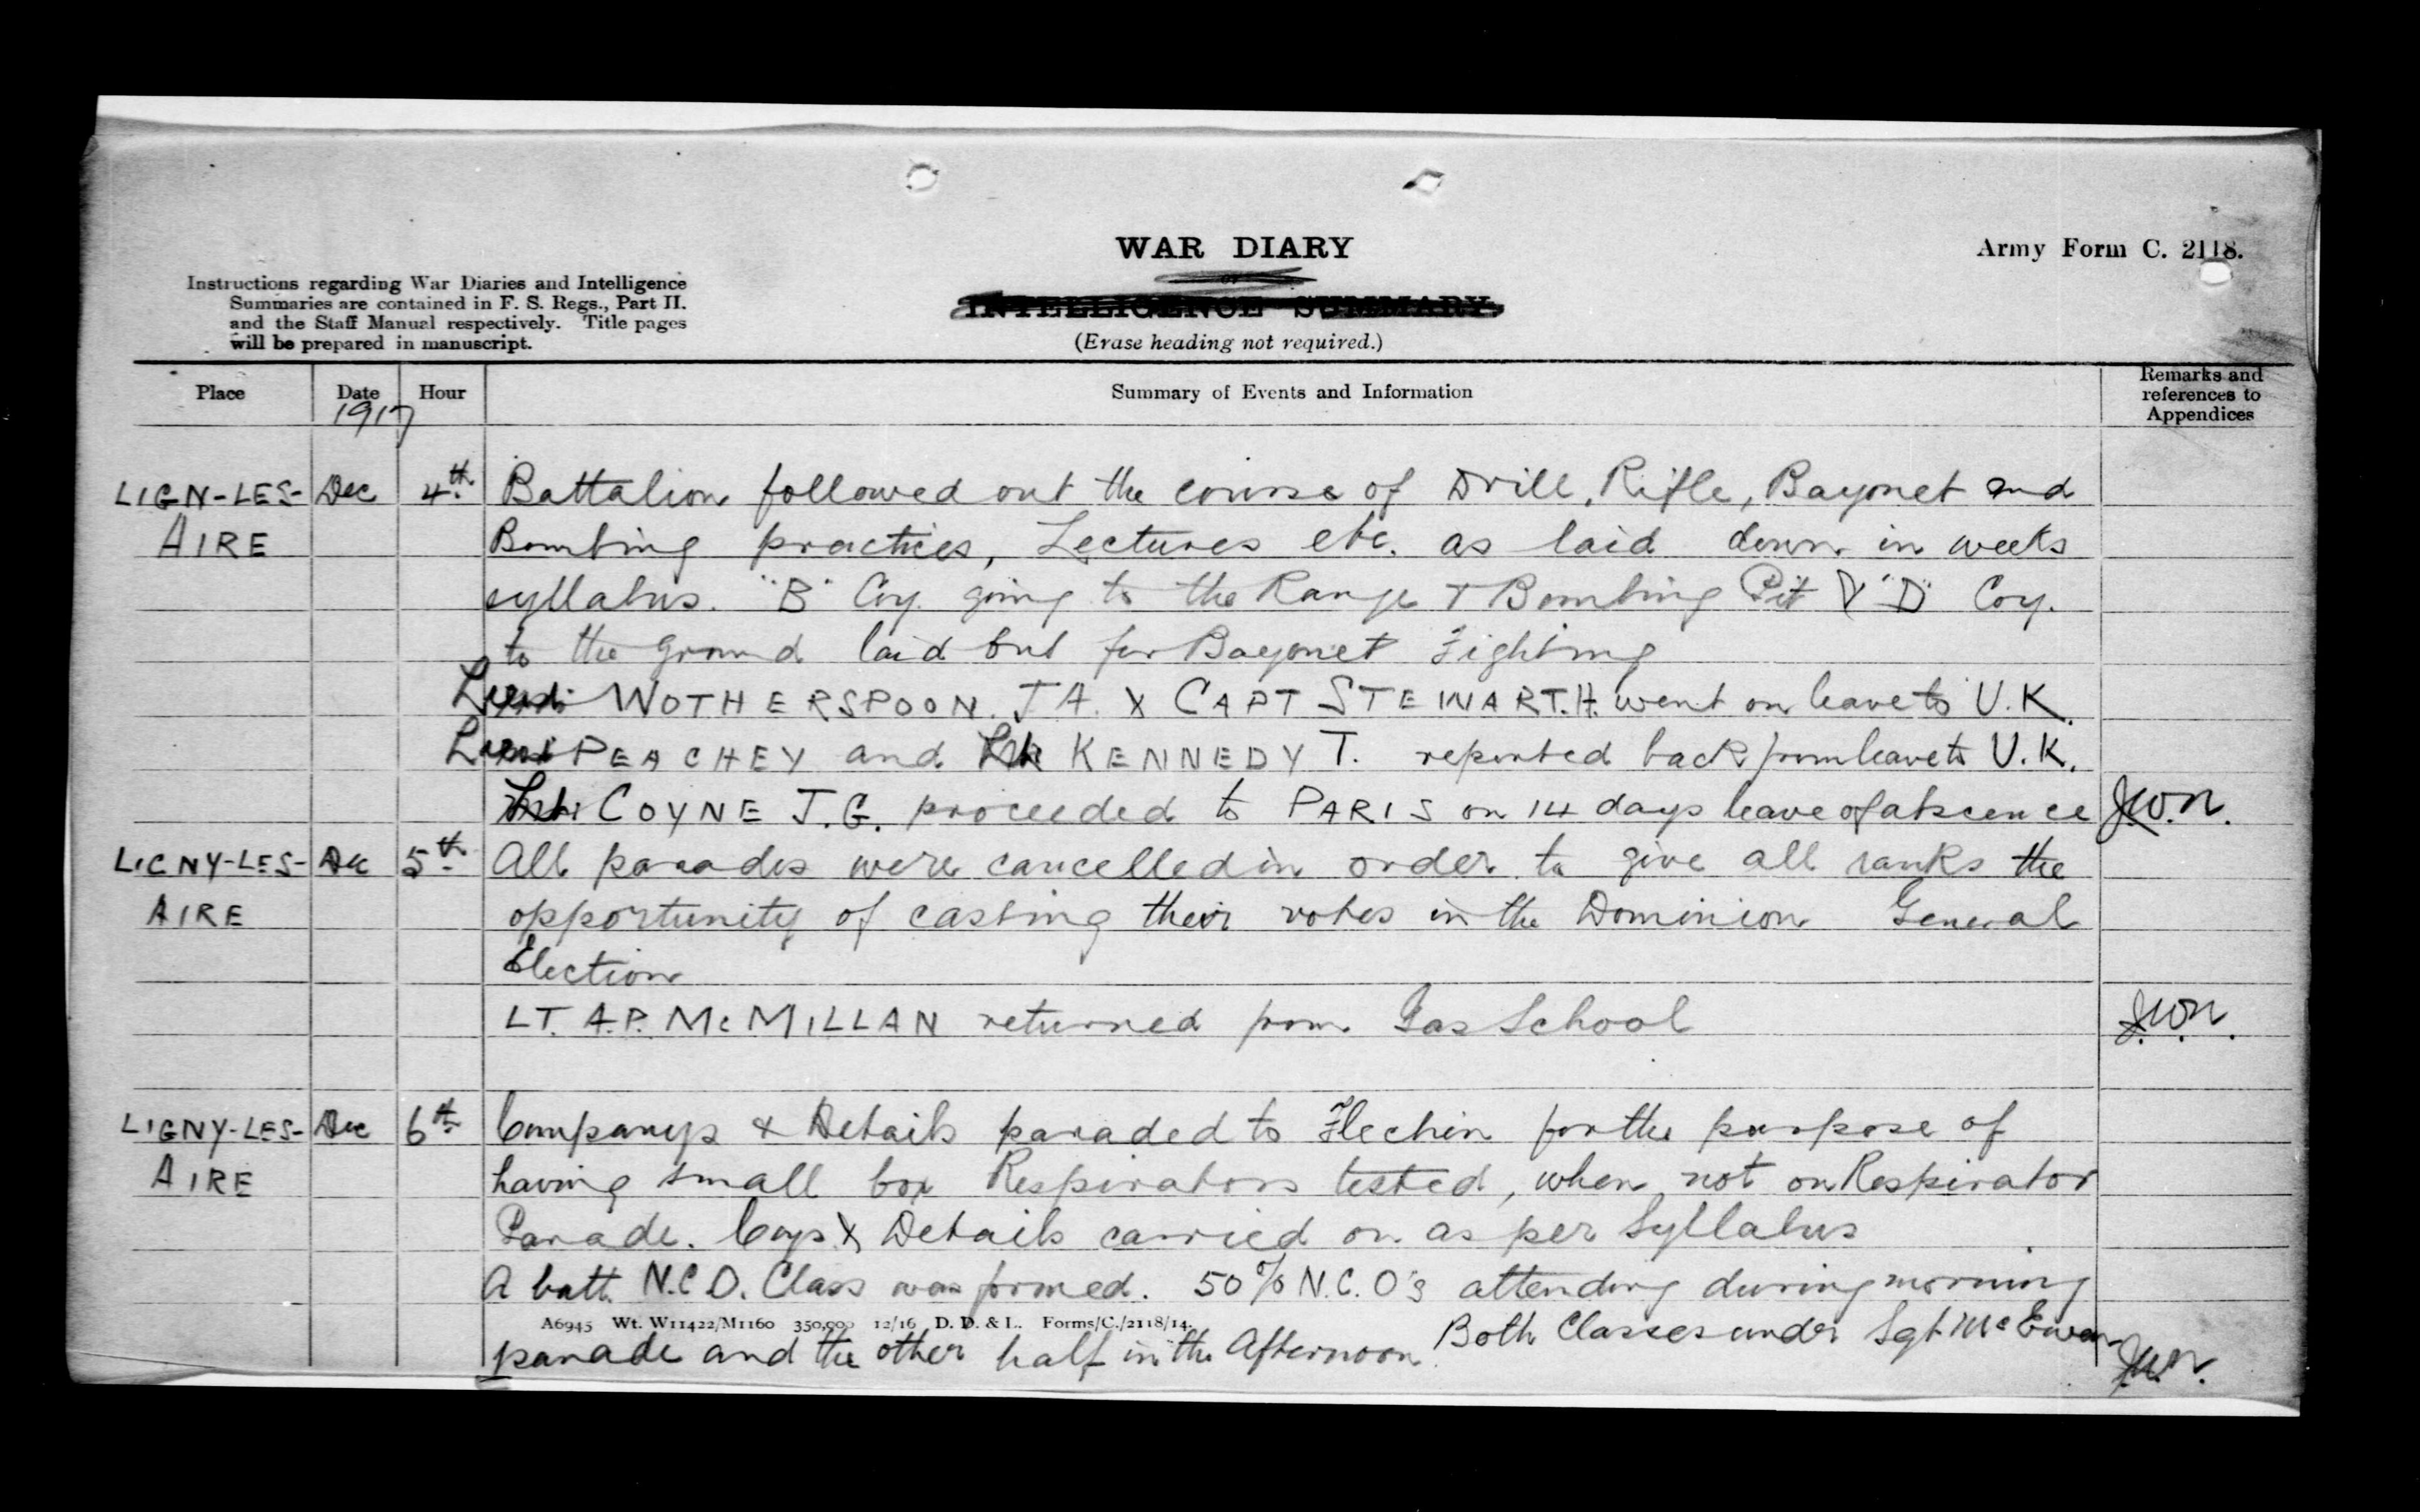 WAR DIARY
or
INTELLIGENCE SUMMARY.
(Erase heading not required.)
Army Form C. 2118.
Instructions regarding War Diaries and Intelligence
Summaries are contained in F. S. Regs., Part II.
and the Staff Manual respectively. Title pages
will be prepared in manuscript.
Place Date Hour Summary of Events and Information Remarks and references to Appendices
1917
LIGN-LES- Dec 4th Battalion followed out the course of Drill, Rifle, Bayonet and
AIRE Bombing practices, Lectures etc. as laid down in weeks
syllabus. "B" Coy. going to the Range & Bombing Pit & "D" Coy.
to the ground laid out for Bayonet Fighting
WOTHERSPOON. J A. & CAPT STEWART. H. went on leave to U.K.
PEACHEY and KENNEDY T. reported back from leave to U.K.
COYNE J.G. proceeded to PARIS on 14 days leave of abscence J.W.N.
LIGNY-LES- Dec 5th All parades were cancelled in order to give all ranks the
AIRE opportunity of casting their votes in the Dominion General
Election
LT. A.P. McMILLAN returned from Gas School J.W.N.
LIGNY-LES- Dec 6th Companys & Details paraded to Flechin for the purpose of
AIRE having small box Respirators tested, when not on Respirator
Parade. Coys & Details carried on as per Syllabus
A batt. N.C.O. Class was formed. 50% N.C.O's attending during morning
A6945 Wt. W11422/M1160 350,000 12/16 D. D. & L. Forms/C./2118/14.
parade and the other half in the Afternoon. Both Classes under Sgt McEwan J.W.N.